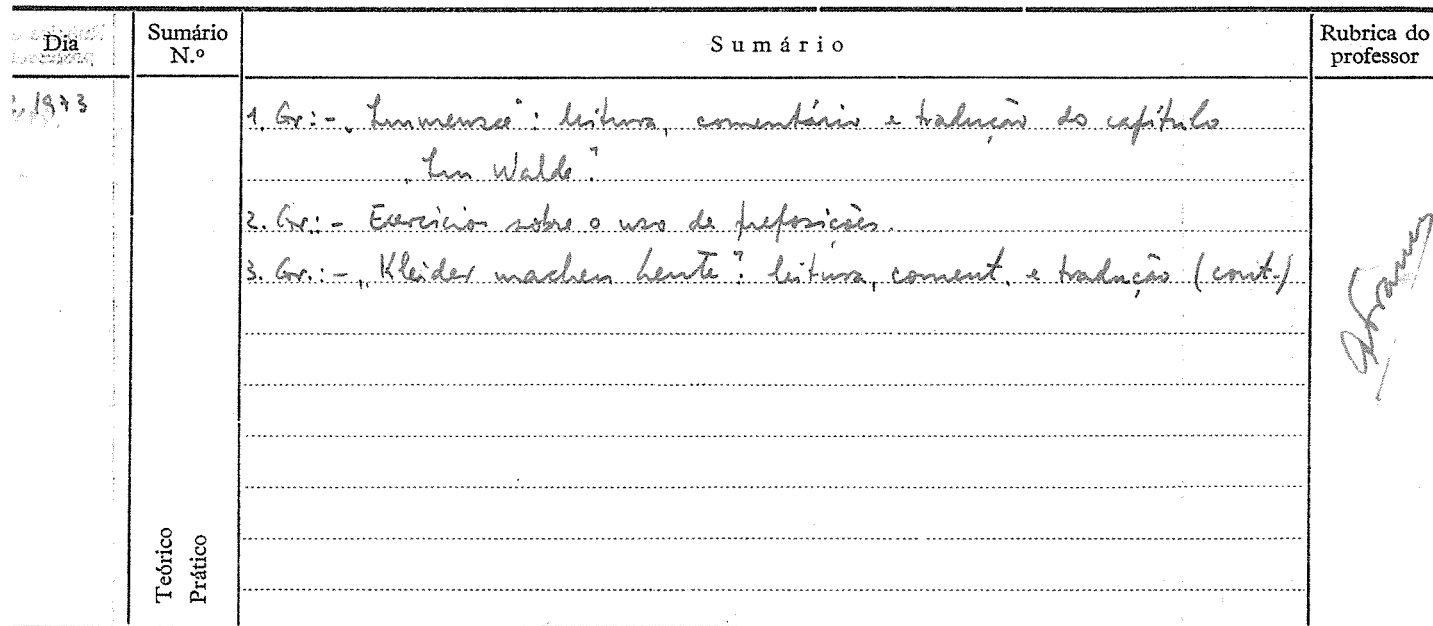 Dia
Sumário N.º
Sumário
Rubrica do professor
1973
1. Gr.: - „Immensee“: leitura, comentário e tradução do capítulo
„Im Walde“.
2. Gr.: - Exercícios sobre o uso de preposições.
3. Gr.: - „Kleider machen Leute“: leitura, coment. e tradução (cont.)
Teórico
Prático